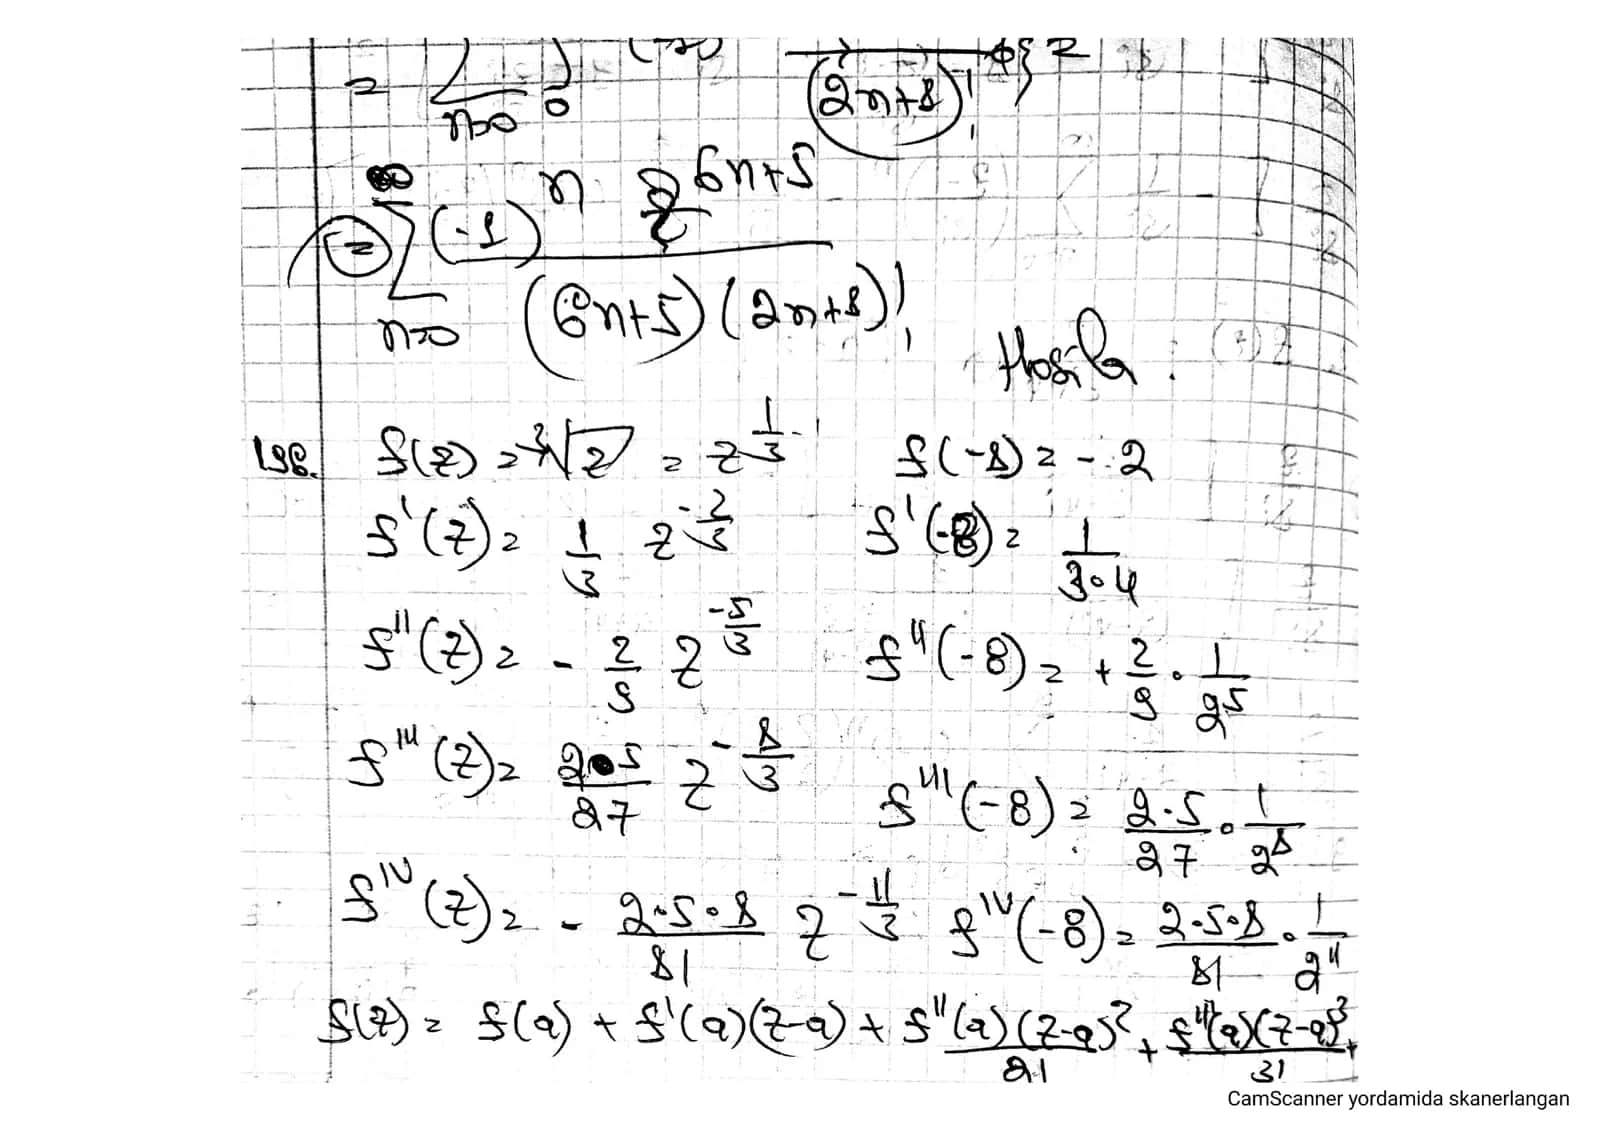 = ∑ n=0 ∫ 0 (2n+1)! z
= ∑ n=0 ∞ (-1)^n z^(6n+5) / (6n+5)(2n+1)!
Hosila :
196. f(z) = ∛z = z^(1/3) f(-8) = -2
f'(z) = 1/3 z^(-2/3) f'(-8) = 1/(3·4)
f''(z) = - 2/9 z^(-5/3) f''(-8) = + 2/9 · 1/2^5
f'''(z) = 2·5/27 z^(-8/3) f'''(-8) = 2·5/27 · 1/2^8
f^IV(z) = - 2·5·8/81 z^(-11/3) f^IV(-8) = 2·5·8/81 · 1/2^11
f(z) = f(a) + f'(a)(z-a) + f''(a)(z-a)^2/2! + f'''(a)(z-a)^3/3! +
CamScanner yordamida skanerlangan